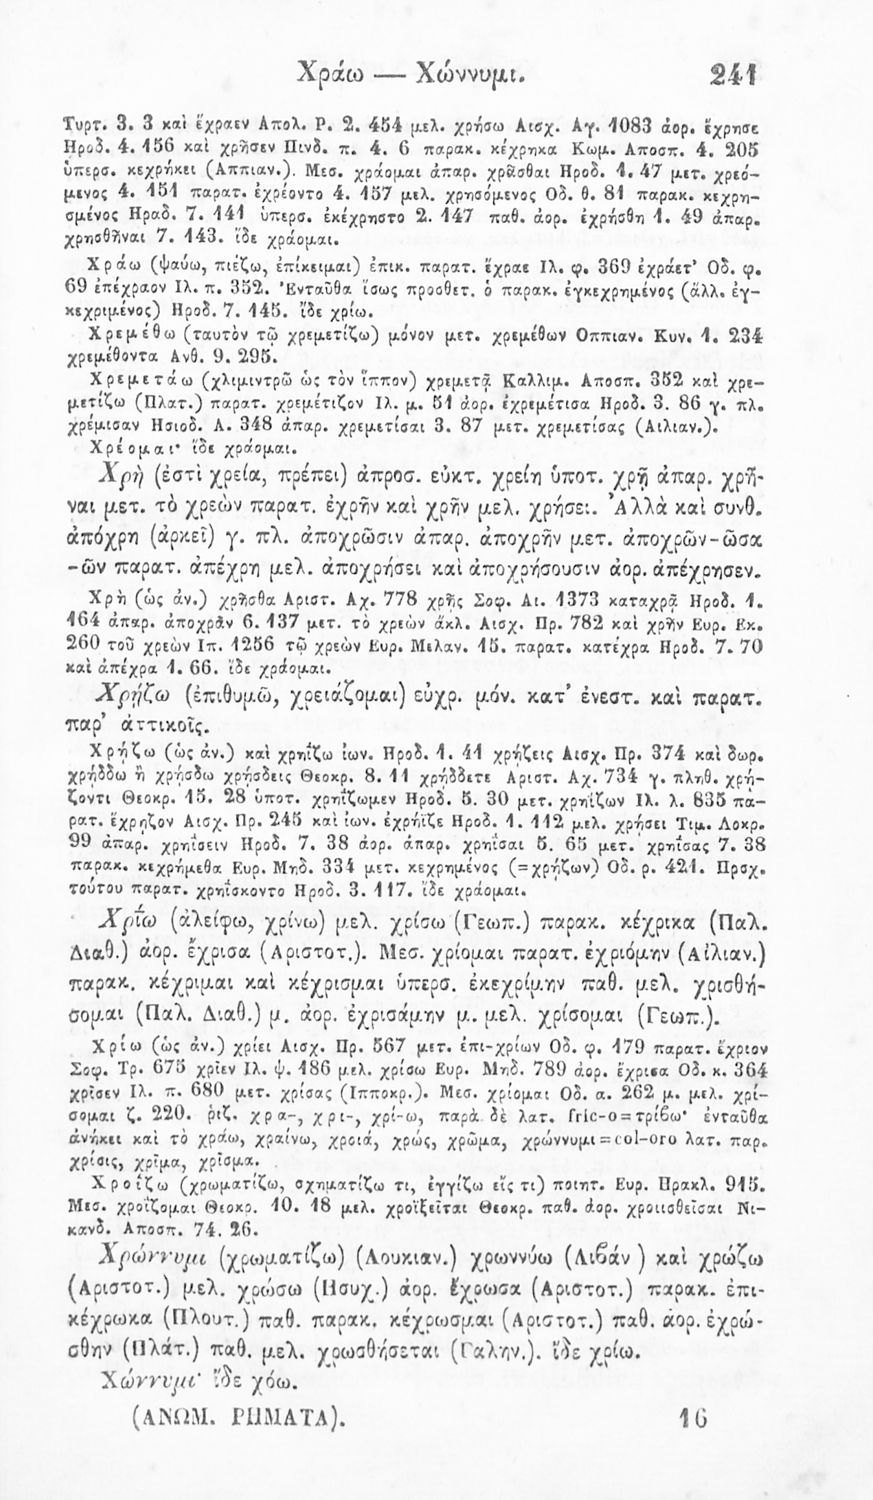 Χράω — Χώννυμι. 241
Τυρτ. 3. 3 καὶ ἔχραεν Απολ. Ρ. 2. 454 μελ. χρήσω Αισχ. Αγ. 1083 ἀορ. ἔχρησε
Ηροδ. 4. 156 καὶ χρῆσεν Πινδ. π. 4. 6 παρακ. κέχρηκα Κωμ. Αποσπ. 4. 205
ὑπερσ. κεχρήκει (Αππιαν.). Μεσ. χράομαι ἀπαρ. χρᾶσθαι Ηροδ. 1. 47 μετ. χρεό-
μενος 4. 151 παρατ. ἐχρέοντο 4. 157 μελ. χρησόμενος Οδ. θ. 81 παρακ. κεχρη-
σμένος Ηραδ. 7. 141 ὑπερσ. ἐκέχρηστο 2. 147 παθ. ἀορ. ἐχρήσθη 1. 49 ἀπαρ.
χρησθῆναι 7. 143. ἴδε χράομαι.
Χράω (ψαύω, πιέζω, ἐπίκειμαι) ἐπικ. παρατ. ἔχραε Ιλ. φ. 369 ἐχράετ' Οδ. φ.
69 ἐπέχραον Ιλ. π. 352. Ἐνταῦθα ἴσως προσθετ. ὁ παρακ. ἐγκεχρημένος (ἄλλ. ἐγ-
κεχριμένος) Ηροδ. 7. 145. ἴδε χρίω.
Χρεμέθω (ταυτὸν τῷ χρεμετίζω) μόνον μετ. χρεμέθων Οππιαν. Κυν. 1. 234
χρεμέθοντα Ανθ. 9. 295.
Χρεμετάω (χλιμιντρῶ ὡς τὸν ἵππον) χρεμετᾷ Καλλιμ. Αποσπ. 352 καὶ χρε-
μετίζω (Πλατ.) παρατ. χρεμέτιζον Ιλ. μ. 51 ἀορ. ἐχρεμέτισα Ηροδ. 3. 86 γ. πλ.
χρέμισαν Ησιοδ. Α. 348 ἀπαρ. χρεμετίσαι 3. 87 μετ. χρεμετίσας (Αιλιαν.).
Χρέομαι· ἴδε χράομαι.
Χρὴ (ἐστὶ χρεία, πρέπει) ἀπροσ. εὐκτ. χρείη ὑποτ. χρῇ ἀπαρ. χρῆ-
ναι μετ. τὸ χρεὼν παρατ. ἐχρῆν καὶ χρῆν μελ. χρήσει. Ἀλλὰ καὶ συνθ.
ἀπόχρη (ἀρκεῖ) γ. πλ. ἀποχρῶσιν ἀπαρ. ἀποχρῆν μετ. ἀποχρῶν-ῶσα
-ῶν παρατ. ἀπέχρη μελ. ἀποχρήσει καὶ ἀποχρήσουσιν ἀορ. ἀπέχρησεν.
Χρὴ (ὡς ἀν.) χρῆσθα Αριστ. Αχ. 778 χρῇς Σοφ. Αι. 1373 καταχρᾷ Ηροδ. 1.
164 ἀπαρ. ἀποχρᾶν 6. 137 μετ. τὸ χρεὼν ἄκλ. Αισχ. Πρ. 782 καὶ χρῆν Ευρ. Εκ.
260 τοῦ χρεὼν Ιπ. 1256 τῷ χρεὼν Ευρ. Μελαν. 15. παρατ. κατέχρα Ηροδ. 7. 70
καὶ ἀπέχρα 1. 66. ἴδε χράομαι.
Χρῄζω (ἐπιθυμῶ, χρειάζομαι) εὐχρ. μόν. κατ' ἐνεστ. καὶ παρατ.
παρ' ἀττικοῖς.
Χρῄζω (ὡς ἀν.) καὶ χρηΐζω ἰων. Ηροδ. 1. 41 χρῄζεις Αισχ. Πρ. 374 καὶ δωρ.
χρῄδδω ἢ χρῄσδω χρῄσδεις Θεοκρ. 8. 11 χρῄδδετε Αριστ. Αχ. 734 γ. πληθ. χρῄ-
ζοντι Θεοκρ. 15. 28 ὑποτ. χρηΐζωμεν Ηροδ. 5. 30 μετ. χρηΐζων Ιλ. λ. 835 πα-
ρατ. ἔχρῃζον Αισχ. Πρ. 245 καὶ ἰων. ἐχρήϊζε Ηροδ. 1. 112 μελ. χρήσει Τιμ. Λοκρ.
99 ἀπαρ. χρηΐσειν Ηροδ. 7. 38 ἀορ. ἀπαρ. χρηΐσαι 5. 65 μετ. χρηΐσας 7. 38
παρακ. κεχρήμεθα Ευρ. Μηδ. 334 μετ. κεχρημένος (=χρῄζων) Οδ. ρ. 421. Προχ.
τούτου παρατ. χρηΐσκοντο Ηροδ. 3. 117. ἴδε χράομαι.
Χρΐω (ἀλείφω, χρίνω) μελ. χρίσω (Γεωπ.) παρακ. κέχρικα (Παλ.
Διαθ.) ἀορ. ἔχρισα (Αριστοτ.). Μεσ. χρίομαι παρατ. ἐχριόμην (Αἰλιαν.)
παρακ. κέχριμαι καὶ κέχρισμαι ὑπερσ. ἐκεχρίμην παθ. μελ. χρισθή-
σομαι (Παλ. Διαθ.) μ. ἀορ. ἐχρισάμην μ. μελ. χρίσομαι (Γεωπ.).
Χρίω (ὡς ἀν.) χρίει Αισχ. Πρ. 567 μετ. ἐπι-χρίων Οδ. φ. 179 παρατ. ἔχριον
Σοφ. Τρ. 675 χρῖεν Ιλ. ψ. 186 μελ. χρίσω Ευρ. Μηδ. 789 ἀορ. ἔχρισα Οδ. κ. 364
χρῖσεν Ιλ. π. 680 μετ. χρίσας (Ιπποκρ.). Μεσ. χρίομαι Οδ. α. 262 μ. μελ. χρί-
σομαι ζ. 220. ῥιζ. χρα-, χρι-, χρί-ω, παρὰ δὲ λατ. fric-o=τρίβω· ἐνταῦθα
ἀνήκει καὶ τὸ χράω, χραίνω, χροιά, χρώς, χρῶμα, χρώννυμι=col-oro λατ. παρ.
χρίσις, χρῖμα, χρῖσμα.
Χροΐζω (χρωματίζω, σχηματίζω τι, ἐγγίζω εἴς τι) ποιητ. Ευρ. Ηρακλ. 915.
Μεσ. χροΐζομαι Θεοκρ. 10. 18 μελ. χροϊξεῖται Θεοκρ. παθ. ἀορ. χροιισθεῖσαι Νι-
κανδ. Αποσπ. 74. 26.
Χρώννυμι (χρωματίζω) (Λουκιαν.) χρωννύω (Λιβάν ) καὶ χρώζω
(Αριστοτ.) μελ. χρώσω (Ησυχ.) ἀορ. ἔχρωσα (Αριστοτ.) παρακ. ἐπι-
κέχρωκα (Πλουτ.) παθ. παρακ. κέχρωσμαι (Αριστοτ.) παθ. ἀορ. ἐχρώ-
σθην (Πλάτ.) παθ. μελ. χρωσθήσεται (Γαλην.). ἴδε χρίω.
Χώννυμι· ἴδε χόω.
(ΑΝΩΜ. ΡΗΜΑΤΑ). 16